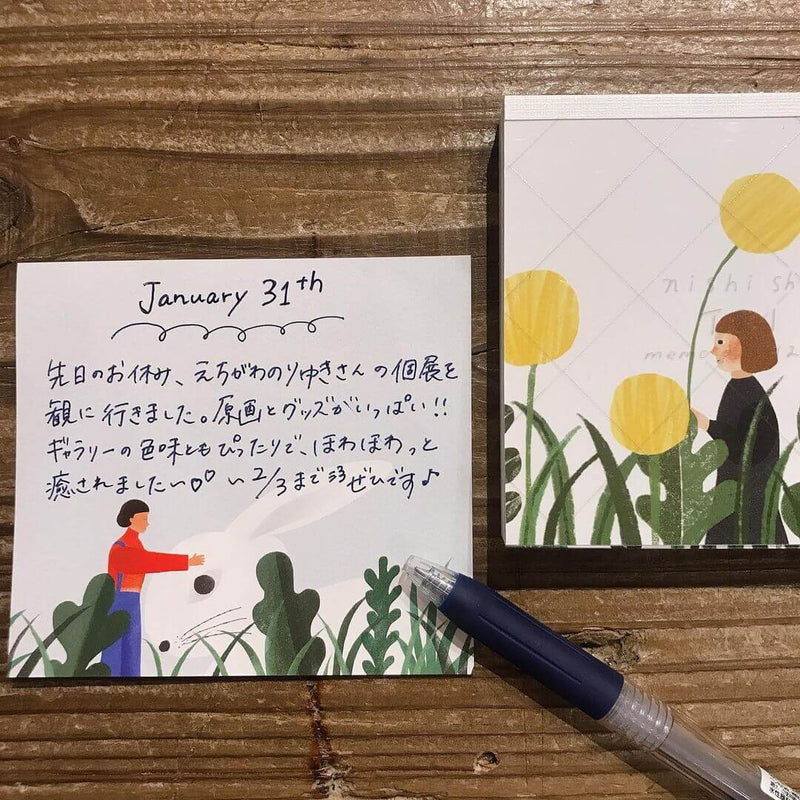 January 31th
先日のお休み、えちがわのりゆきさんの個展を
観に行きました。原画とグッズがいっぱい!!
ギャラリーの色味ともぴったりで、ほわほわっと
癒されました
2/3まで ぜひです♪
nishi sh
memo